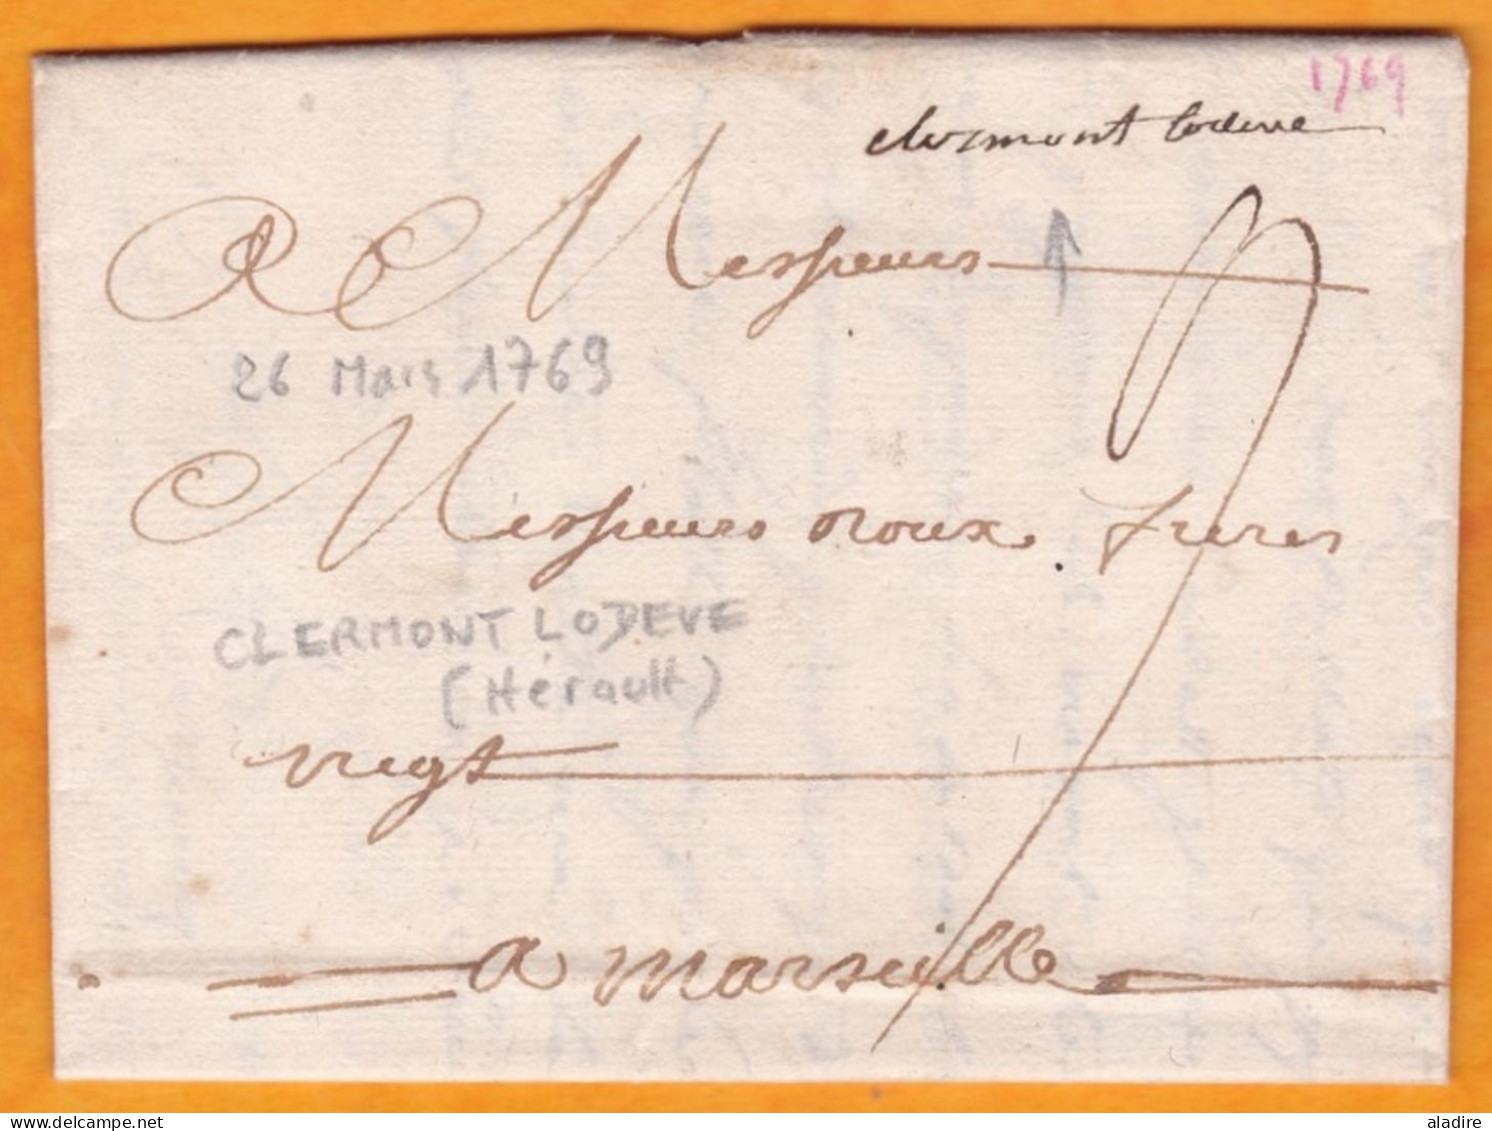 1769
clermont lodeve
A Messieurs
26 Mars 1769
Messieurs roux freres
CLERMONT LODEVE
(Hérault)
negt
a marseille
aladire